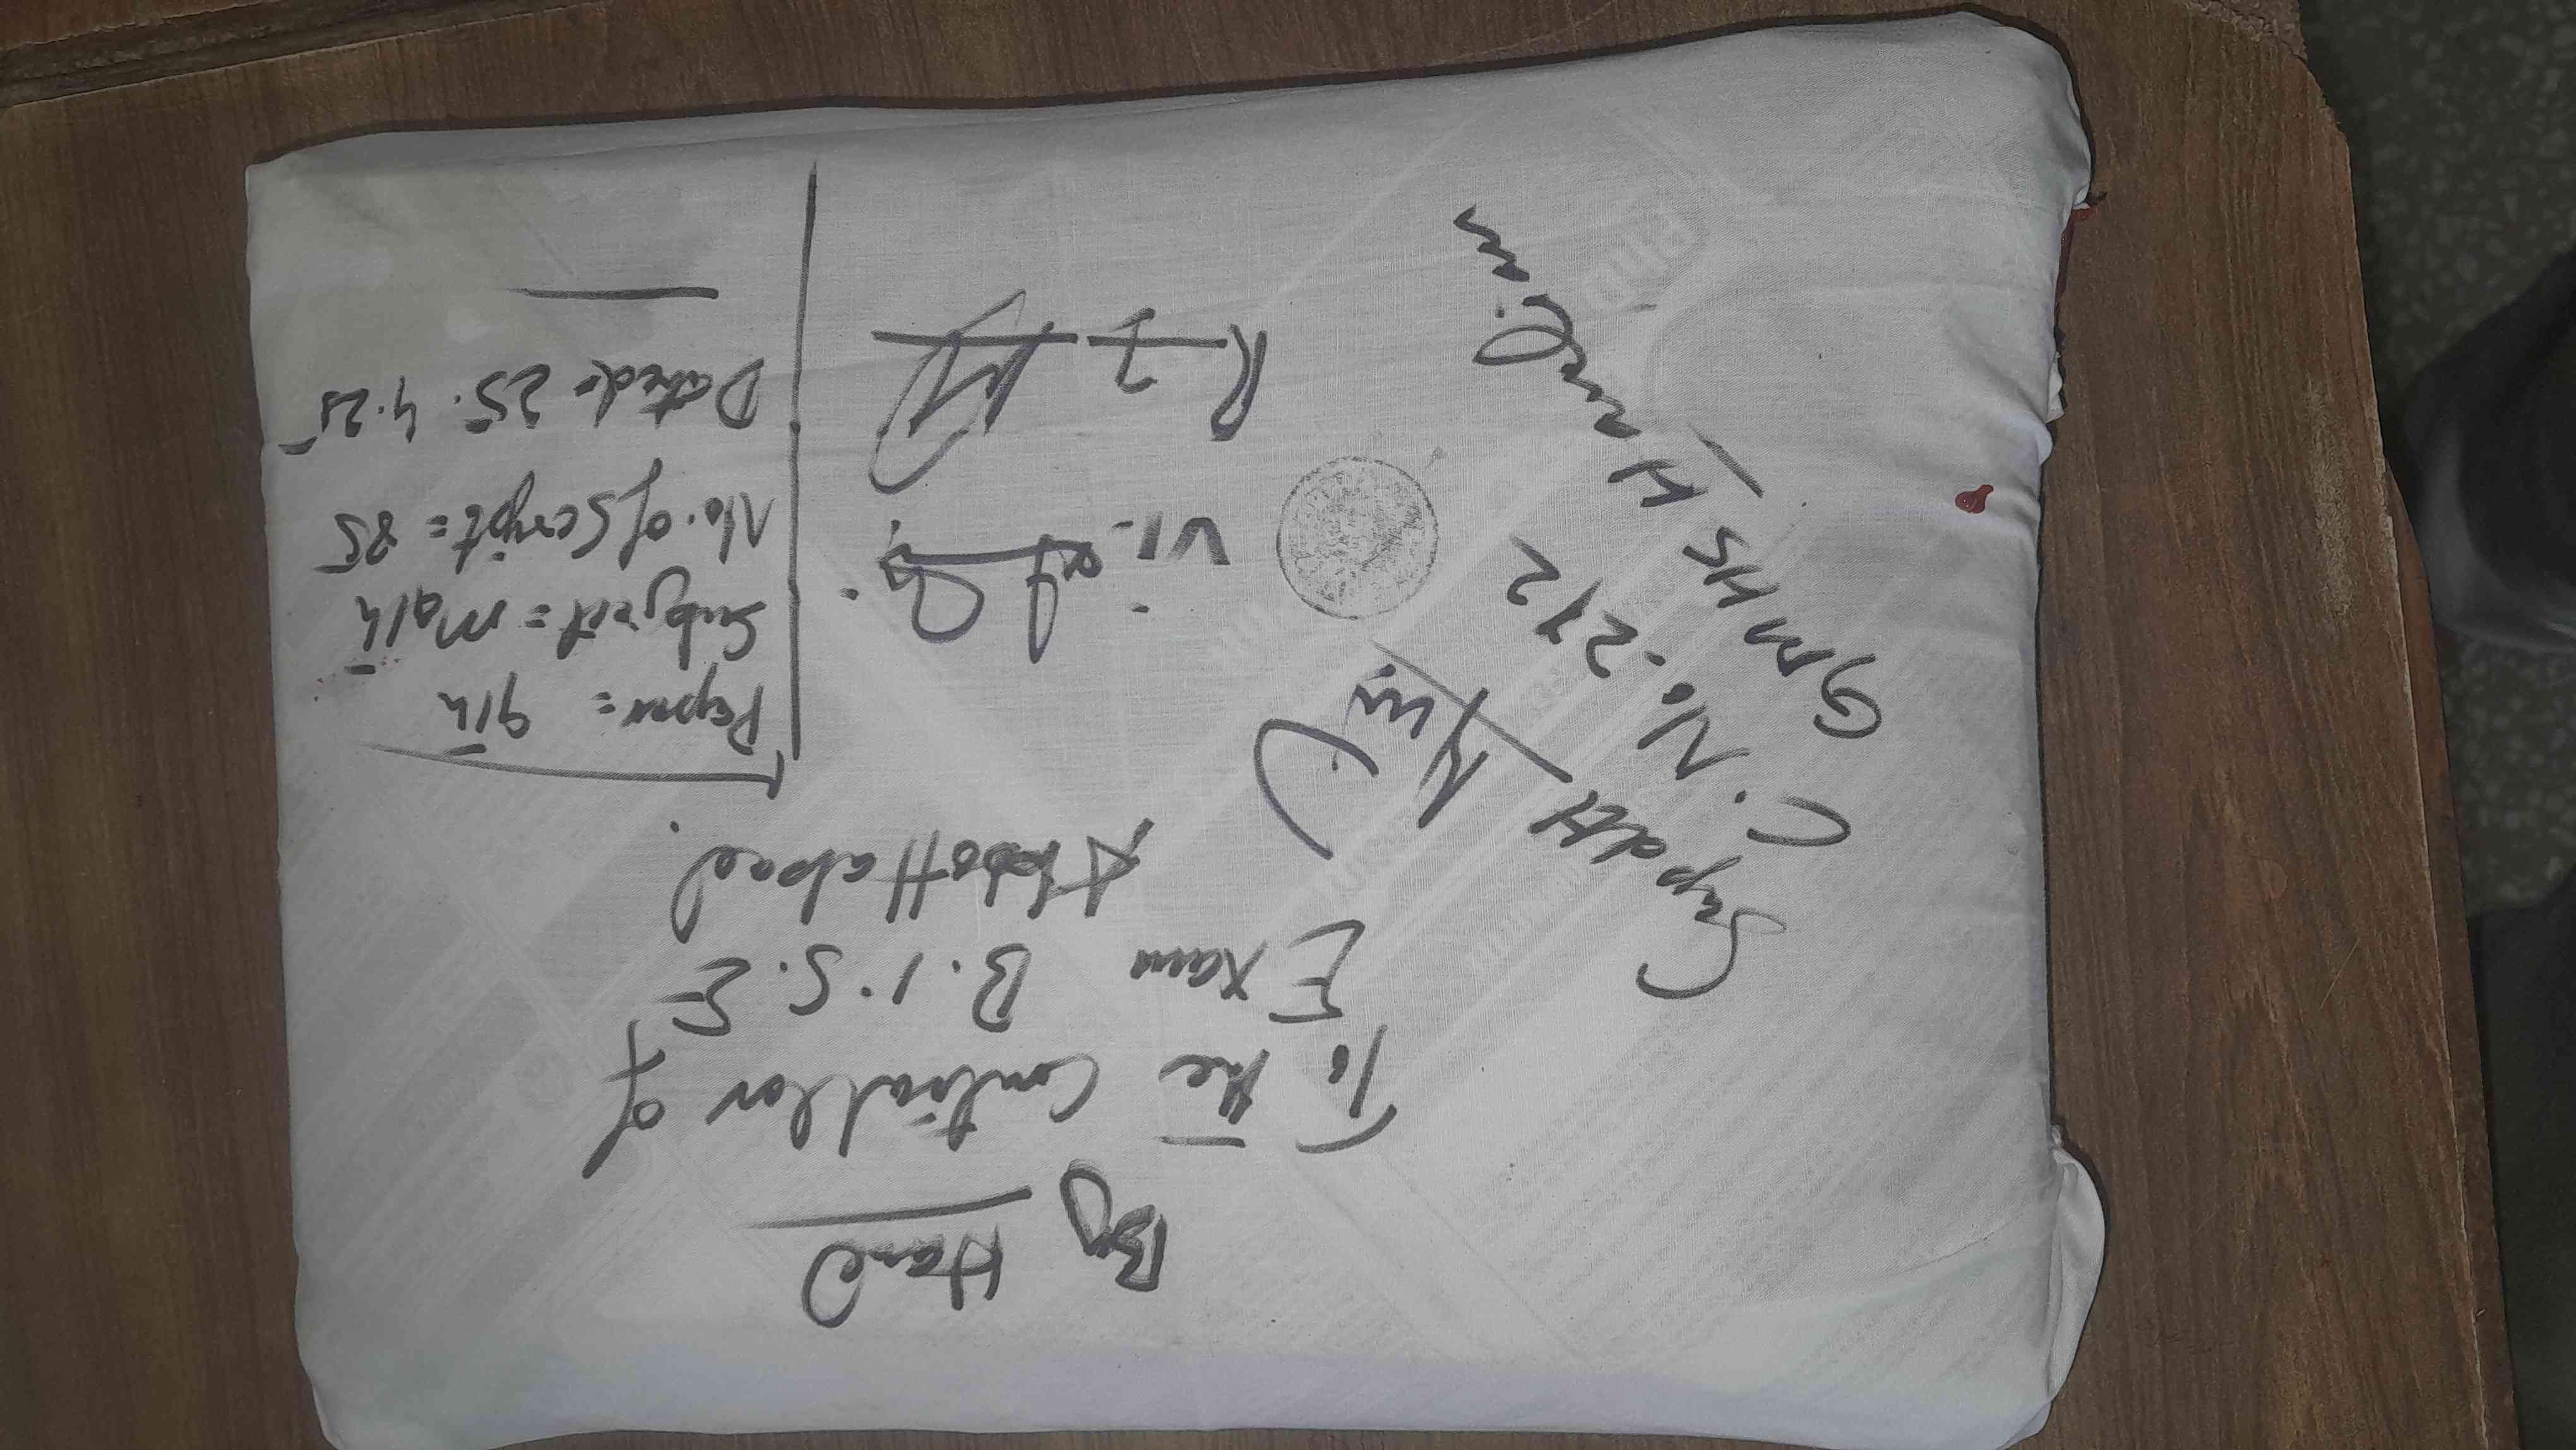 By Hand
To the Controller of
Exam B.I.S.E
Abbottabad.
Paper = 9th
Subject = Math
No. of Script = 85
Dated: 25.4.25
Supdtt
C. No. 272
GMHS
VI.
R-I